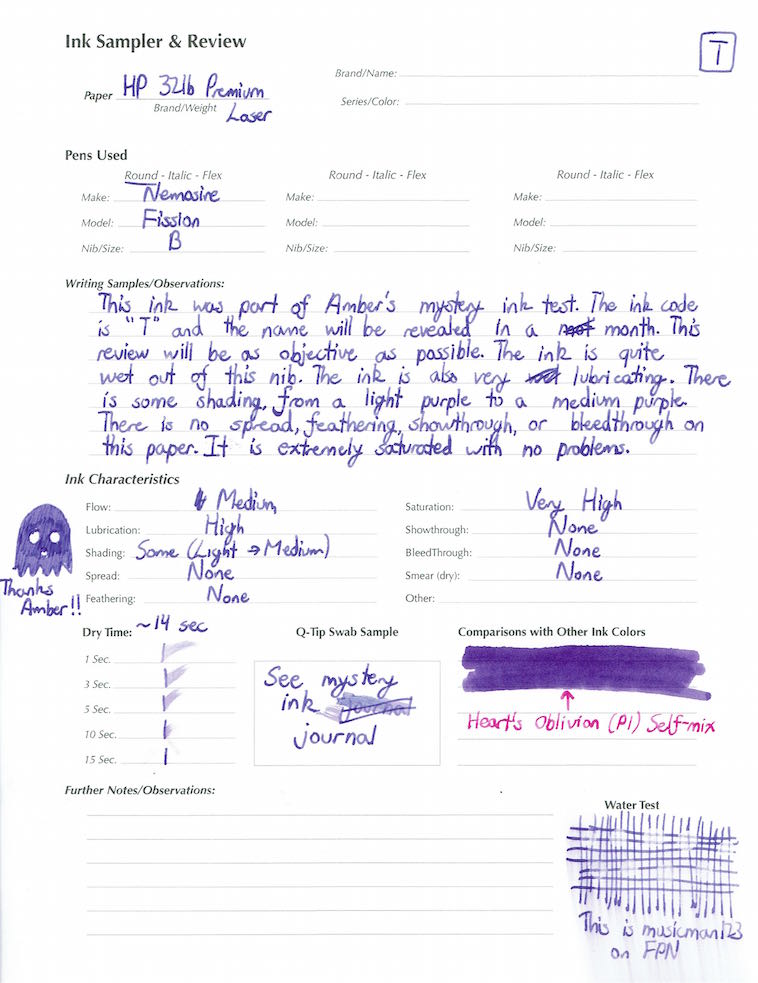 Ink Sampler & Review
T
Brand/Name:
Paper HP 32lb Premium
Brand/Weight Laser
Series/Color:
Pens Used
Round - Italic - Flex Round - Italic - Flex Round - Italic - Flex
Make: Nemosine Make: Make:
Model: Fission Model: Model:
Nib/Size: B Nib/Size: Nib/Size:
Writing Samples/Observations:
This ink was part of Amber's mystery ink test. The ink code
is "T" and the name will be revealed in a month. This
review will be as objective as possible. The ink is quite
wet out of this nib. The ink is also very lubricating. There
is some shading, from a light purple to a medium purple.
There is no spread, feathering, showthrough, or bleedthrough on
this paper. It is extremely saturated with no problems.
Ink Characteristics
Flow: Medium Saturation: Very High
Lubrication: High Showthrough: None
Shading: Some (Light → Medium) BleedThrough: None
Spread: None Smear (dry): None
Feathering: None Other:
Thanks
Amber!!
Dry Time: ~14 sec Q-Tip Swab Sample Comparisons with Other Ink Colors
1 Sec.
3 Sec.
5 Sec.
10 Sec.
15 Sec.
See mystery
ink journal
journal
Heart's Oblivion (P1) Self-mix
Further Notes/Observations:
Water Test
This is musicman123
on FPN